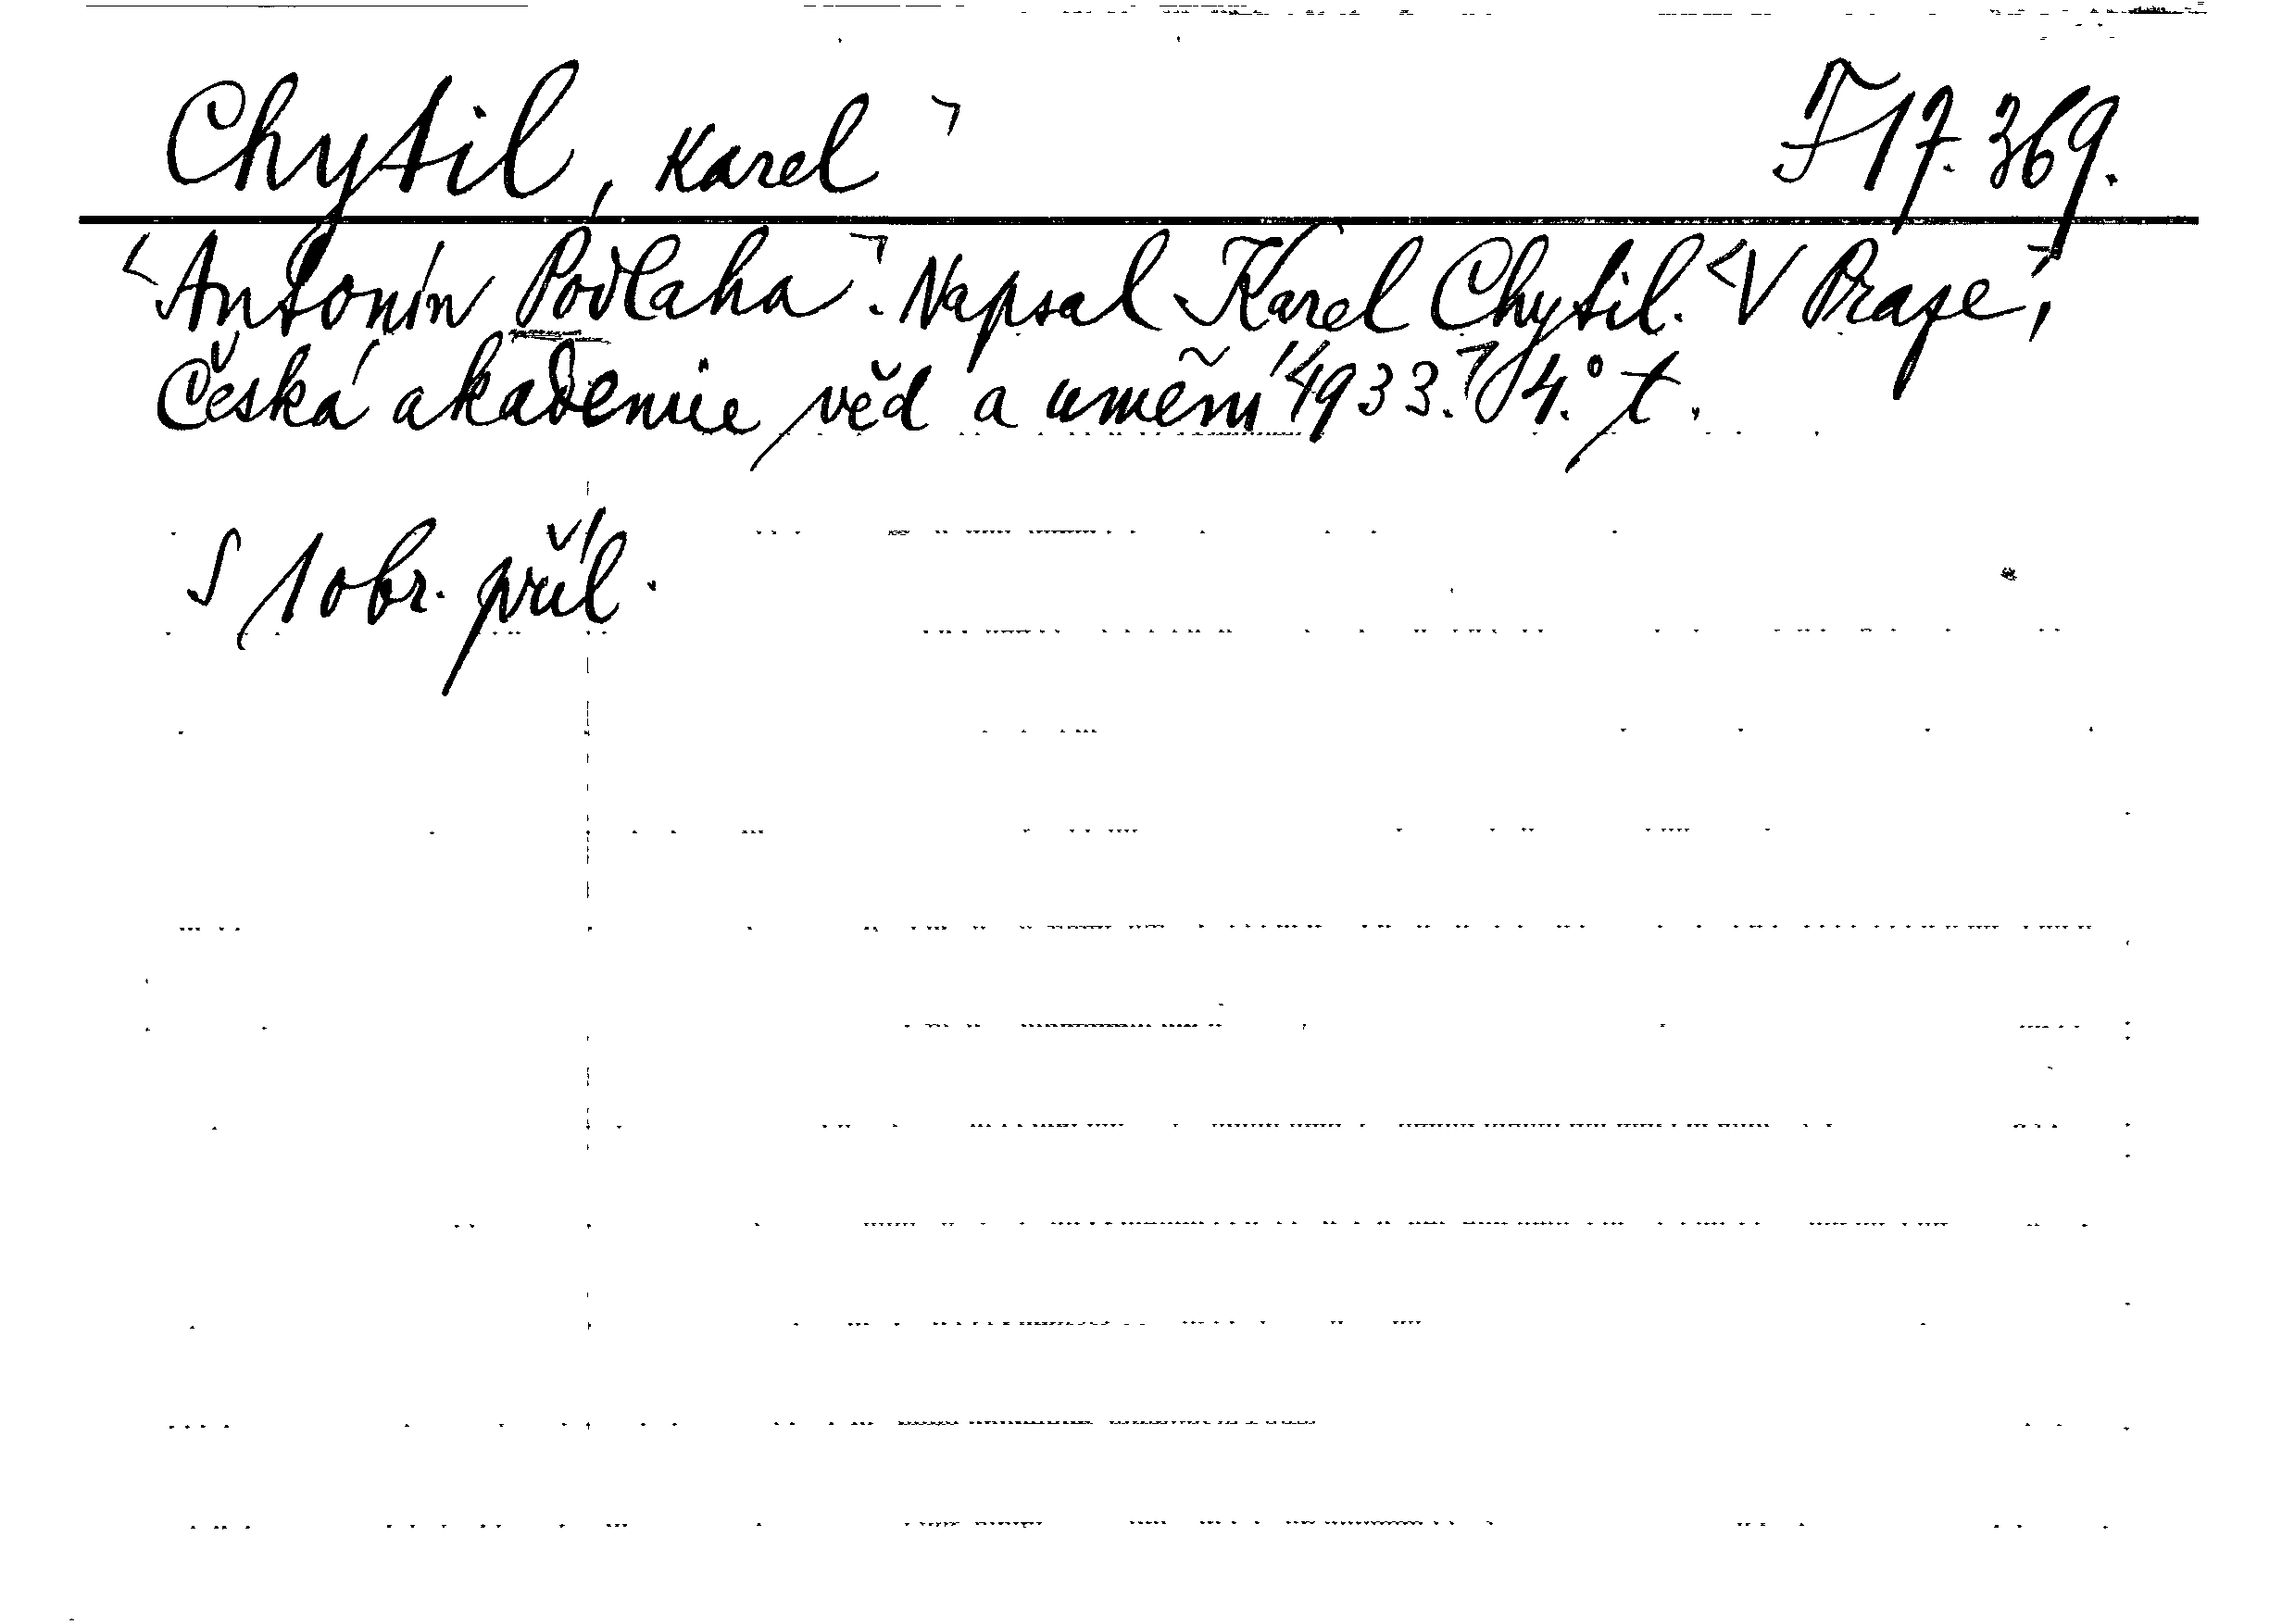 Chytil, Karel ˺ F 17.369.
˹Antonín Podlaha˺. Napsal Karel Chytil. ˹V Praze˺,
Česká akademie věd a umění 1933.˺ 4.° t.
S 1 obr. příl.